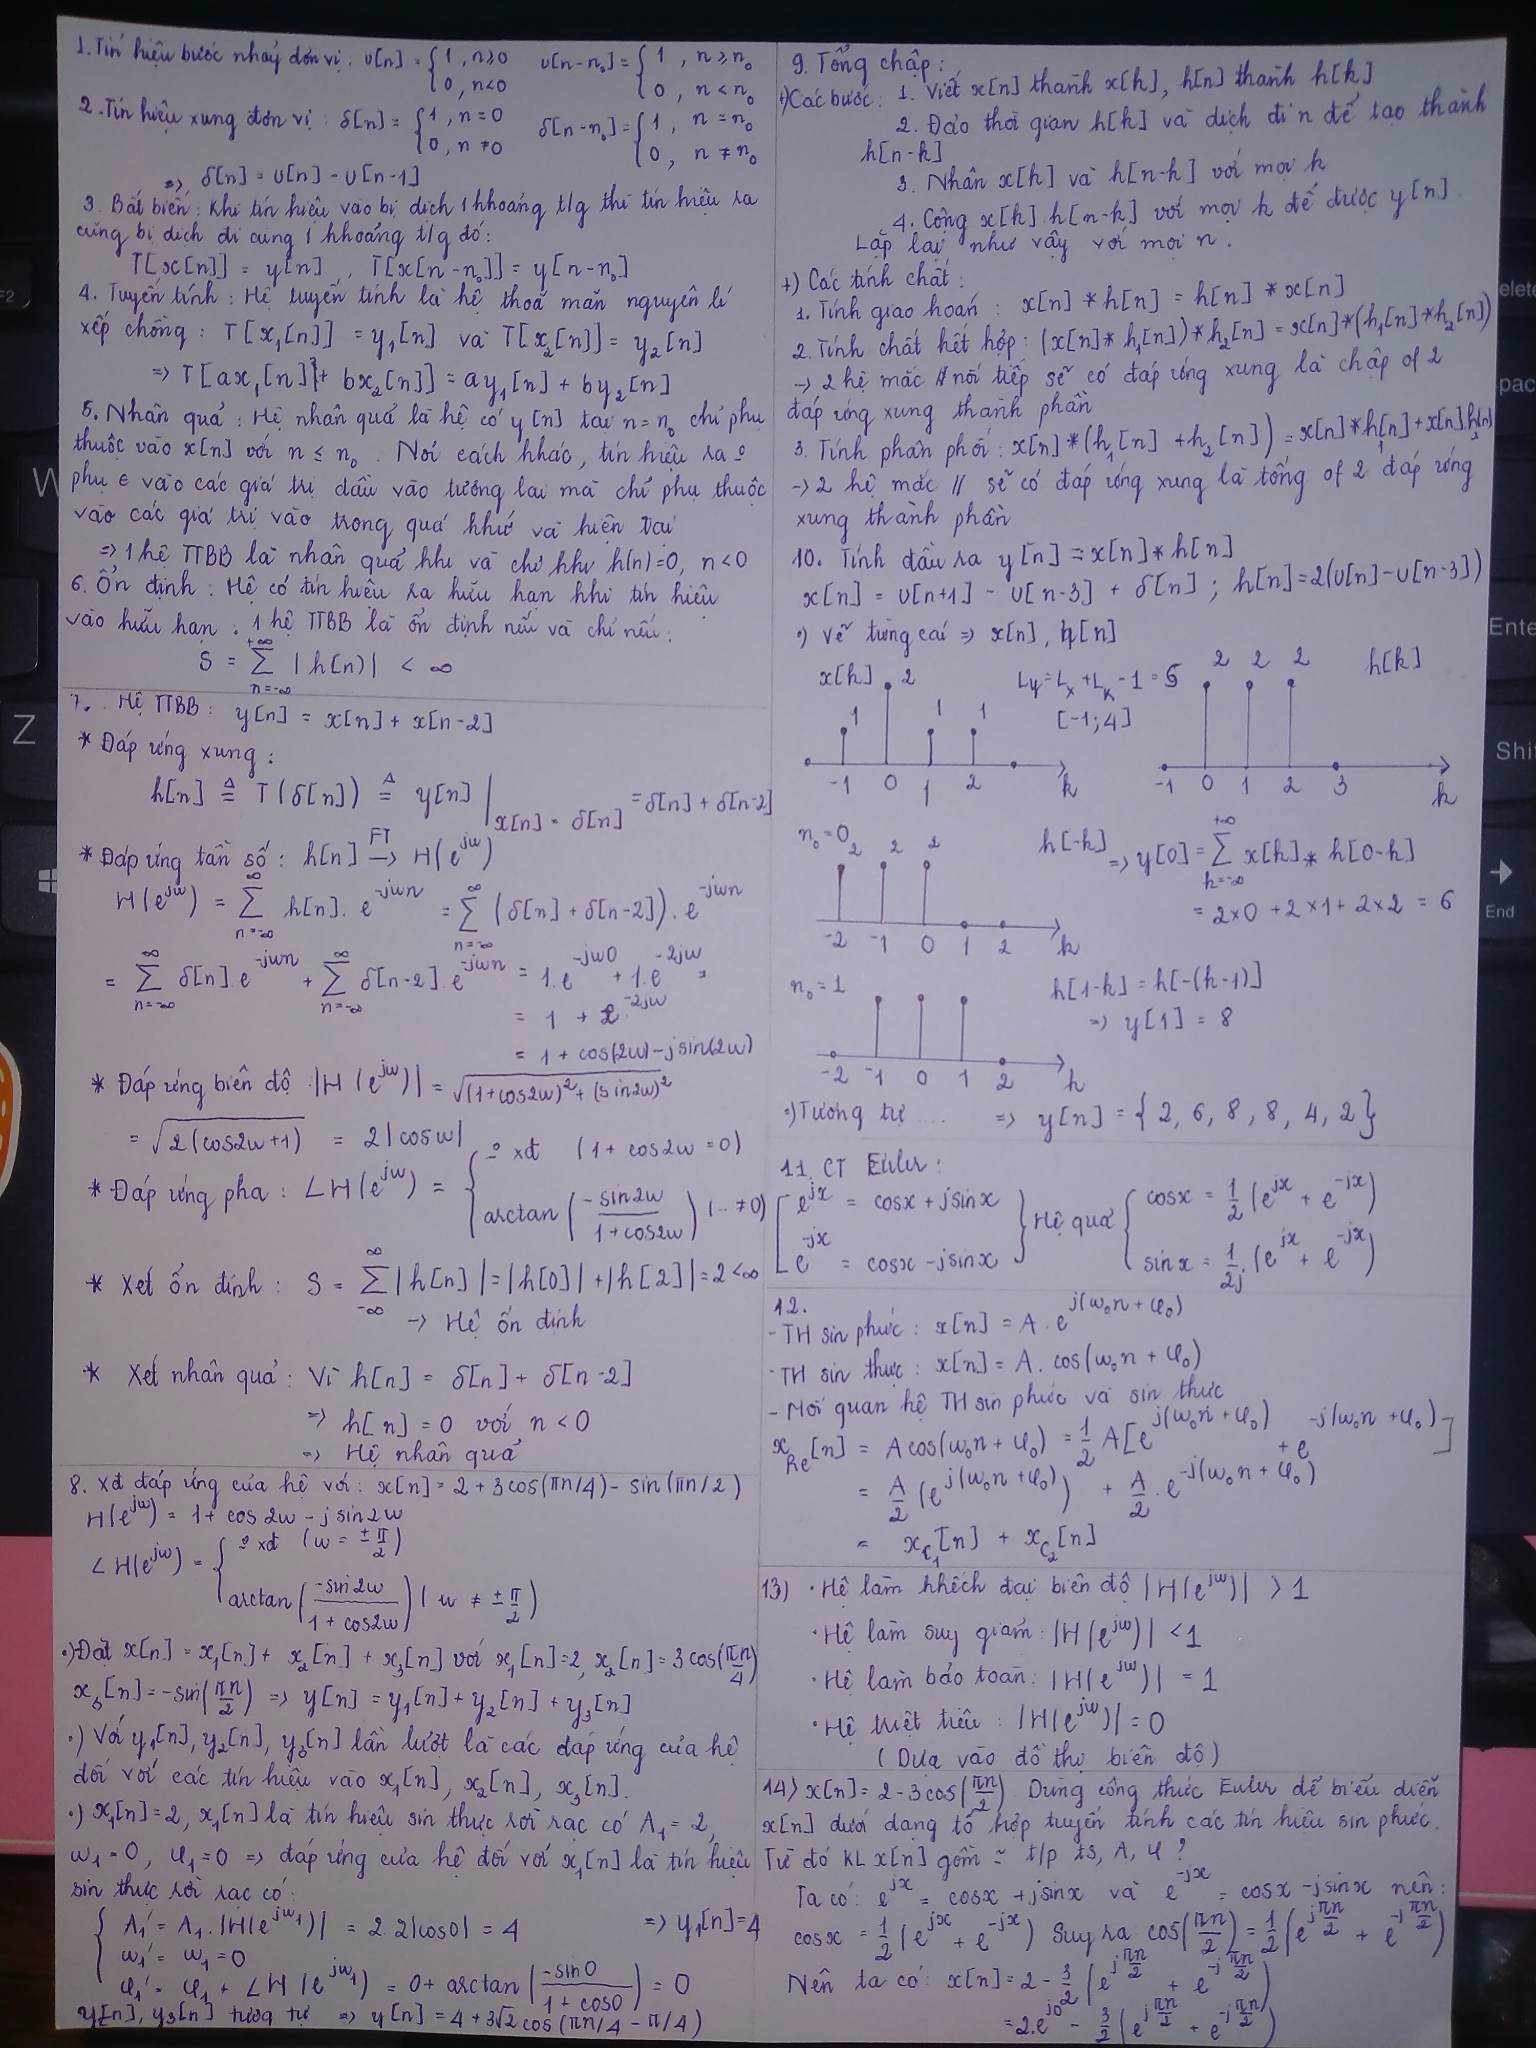 1. Tín hiệu bước nhảy đơn vị: u[n] = { 1, n ≥ 0   u[n-n₀] = { 1, n ≥ n₀
0, n < 0   0, n < n₀
2. Tín hiệu xung đơn vị: δ[n] = { 1, n = 0   δ[n-n₀] = { 1, n = n₀
0, n ≠ 0   0, n ≠ n₀
=> δ[n] = u[n] - u[n-1]
3. Bất biến: Khi tín hiệu vào bị dịch 1 khoảng t/g thì tín hiệu ra
cũng bị dịch đi cùng 1 khoảng t/g đó:
T[x[n]] = y[n], T[x[n-n₀]] = y[n-n₀]
4. Tuyến tính: Hệ tuyến tính là hệ thoả mãn nguyên lí
xếp chồng: T[x₁[n]] = y₁[n] và T[x₂[n]] = y₂[n]
=> T[ax₁[n] + bx₂[n]] = ay₁[n] + by₂[n]
5. Nhân quả: Hệ nhân quả là hệ có y[n] tại n = n₀ chỉ phụ
thuộc vào x[n] với n ≤ n₀. Nói cách khác, tín hiệu ra
phụ vào các giá trị đầu vào tương lai mà chỉ phụ thuộc
vào các giá trị vào trong quá khứ và hiện tại
=> 1 hệ TTBB là nhân quả khi và chỉ khi h(n) = 0, n < 0
6. Ổn định: Hệ có tín hiệu ra hữu hạn khi tín hiệu
vào hữu hạn. 1 hệ TTBB là ổn định nếu và chỉ nếu:
S = Σ_{n=-∞}^{+∞} |h(n)| < ∞
7. Hệ TTBB: y[n] = x[n] + x[n-2]
* Đáp ứng xung:
h[n] ≜ T(δ[n]) ≜ y[n] |_{x[n] = δ[n]} = δ[n] + δ[n-2]
* Đáp ứng tần số: h[n] —FT→ H(e^{jω})
H(e^{jω}) = Σ_{n=-∞}^{∞} h[n].e^{-jωn} = Σ_{n=-∞}^{∞} (δ[n] + δ[n-2]).e^{-jωn}
= Σ_{n=-∞}^{∞} δ[n].e^{-jωn} + Σ_{n=-∞}^{∞} δ[n-2].e^{-jωn} = 1.e^{-jω0} + 1.e^{-2jω}
= 1 + e^{-2jω}
= 1 + cos(2ω) - jsin(2ω)
* Đáp ứng biên độ |H(e^{jω})| = √((1+cos2ω)² + (sin2ω)²)
= √(2(cos2ω+1)) = 2|cosω|
* Đáp ứng pha: ∠H(e^{jω}) = { xđ (1+cos2ω = 0)
arctan(-sin2ω / 1+cos2ω) (... ≠ 0)
* Xét ổn định: S = Σ_{-∞}^{∞} |h[n]| = |h[0]| + |h[2]| = 2 < ∞
→ Hệ ổn định
* Xét nhân quả: Vì h[n] = δ[n] + δ[n-2]
=> h[n] = 0 với n < 0
=> Hệ nhân quả
8. Xđ đáp ứng của hệ với: x[n] = 2 + 3cos(πn/4) - sin(πn/2)
H(e^{jω}) = 1 + cos2ω - jsin2ω
∠H(e^{jω}) = { xđ (ω = ±π/2)
arctan(-sin2ω / 1+cos2ω) (ω ≠ ±π/2)
•) Đặt x[n] = x₁[n] + x₂[n] + x₃[n] với x₁[n] = 2, x₂[n] = 3cos(πn/4)
x₃[n] = -sin(πn/2) => y[n] = y₁[n] + y₂[n] + y₃[n]
•) Với y₁[n], y₂[n], y₃[n] lần lượt là các đáp ứng của hệ
đối với các tín hiệu vào x₁[n], x₂[n], x₃[n].
•) x₁[n] = 2, x₁[n] là tín hiệu sin thực rời rạc có A₁ = 2,
ω₁ = 0, φ₁ = 0 => đáp ứng của hệ đối với x₁[n] là tín hiệu
sin thực rời rạc có:
{ A₁' = A₁.|H(e^{jω₁})| = 2.2|cos0| = 4   => y₁[n] = 4
ω₁' = ω₁ = 0
φ₁' = φ₁ + ∠H(e^{jω₁}) = 0 + arctan(-sin0 / 1+cos0) = 0
y₂[n], y₃[n] tương tự => y[n] = 4 + 3√2 cos(πn/4 - π/4)
9. Tổng chập:
+) Các bước: 1. Viết x[n] thành x[k], h[n] thành h[k]
2. Đảo thời gian h[k] và dịch đi n để tạo thành
h[n-k]
3. Nhân x[k] và h[n-k] với mọi k
4. Cộng x[k].h[n-k] với mọi k để được y[n].
Lặp lại như vậy với mọi n.
+) Các tính chất:
1. Tính giao hoán: x[n] * h[n] = h[n] * x[n]
2. Tính chất kết hợp: (x[n] * h₁[n]) * h₂[n] = x[n] * (h₁[n] * h₂[n])
→ 2 hệ mắc nối tiếp sẽ có đáp ứng xung là chập of 2
đáp ứng xung thành phần
3. Tính phân phối: x[n] * (h₁[n] + h₂[n]) = x[n] * h₁[n] + x[n].h₂[n]
→ 2 hệ mắc // sẽ có đáp ứng xung là tổng of 2 đáp ứng
xung thành phần
10. Tính đầu ra y[n] = x[n] * h[n]
x[n] = u[n+1] - u[n-3] + δ[n]; h[n] = 2(u[n] - u[n-3])
•) Vẽ từng cái => x[n], h[n]
x[k] 2   Ly = Lx + Lh - 1 =   2 2 2   h[k]
1   1 1   [-1;4]
-1 0 1 2 k   -1 0 1 2 3 k
n₀ = 0   2 2 2   h[-k] => y[0] = Σ_{k=-∞}^{+∞} x[k] * h[0-k]
= 2×0 + 2×1 + 2×2 = 6
-2 -1 0 1 2 k
n₀ = 1   h[1-k] = h[-(k-1)]
=> y[1] = 8
-2 -1 0 1 2 k
•) Tương tự ... => y[n] = {2, 6, 8, 8, 4, 2}
11. CT Euler:
[ e^{jx} = cosx + jsinx } Hệ quả { cosx = 1/2 (e^{jx} + e^{-jx})
e^{-jx} = cosx - jsinx   sinx = 1/2j (e^{jx} + e^{-jx})
12.
- TH sin phức: x[n] = A.e^{j(ω₀n + φ₀)}
- TH sin thực: x[n] = A.cos(ω₀n + φ₀)
- Mối quan hệ TH sin phức và sin thực
x_{Re}[n] = Acos(ω₀n + φ₀) = 1/2 A[e^{j(ω₀n + φ₀)} + e^{-j(ω₀n + φ₀)}]
= A/2 (e^{j(ω₀n + φ₀)}) + A/2 . e^{-j(ω₀n + φ₀)}
= x_{C₁}[n] + x_{C₂}[n]
13) • Hệ làm khếch đại biên độ |H(e^{jω})| > 1
• Hệ làm suy giảm: |H(e^{jω})| < 1
• Hệ làm bảo toàn: |H(e^{jω})| = 1
• Hệ triệt tiêu: |H(e^{jω})| = 0
(Dựa vào đồ thị biên độ)
14) x[n] = 2 - 3cos(πn/2). Dùng công thức Euler để biểu diễn
x[n] dưới dạng tổ hợp tuyến tính các tín hiệu sin phức.
Từ đó KL x[n] gồm ~ t/p ts, A, φ?
Ta có: e^{jx} = cosx + jsinx và e^{-jx} = cosx - jsinx nên:
cosx = 1/2 (e^{jx} + e^{-jx}) Suy ra: cos(πn/2) = 1/2 (e^{jπn/2} + e^{-jπn/2})
Nên ta có: x[n] = 2 - 3/2 (e^{jπn/2} + e^{-jπn/2})
= 2.e^{j0} - 3/2 (e^{jπn/2} + e^{-jπn/2})